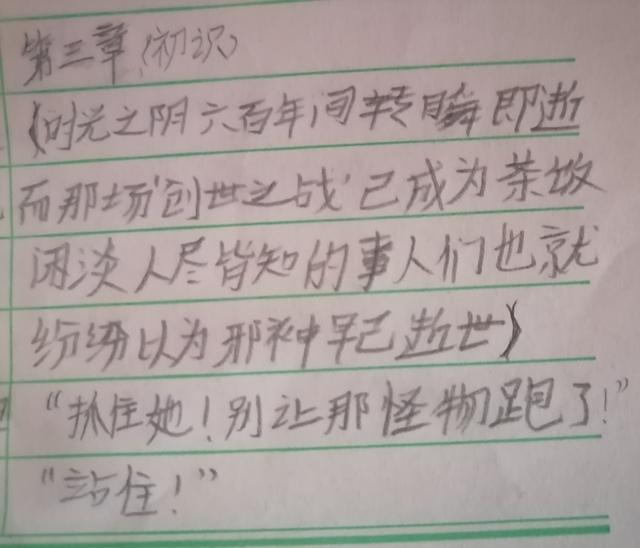 第三章(初识)
(时光之阴六百年间转瞬即逝
而那场'创世之战'已成为茶饭
闲淡人尽皆知的事人们也就
纷纷以为邪神早已逝世)
“抓住她！别让那怪物跑了！”
“站住！”